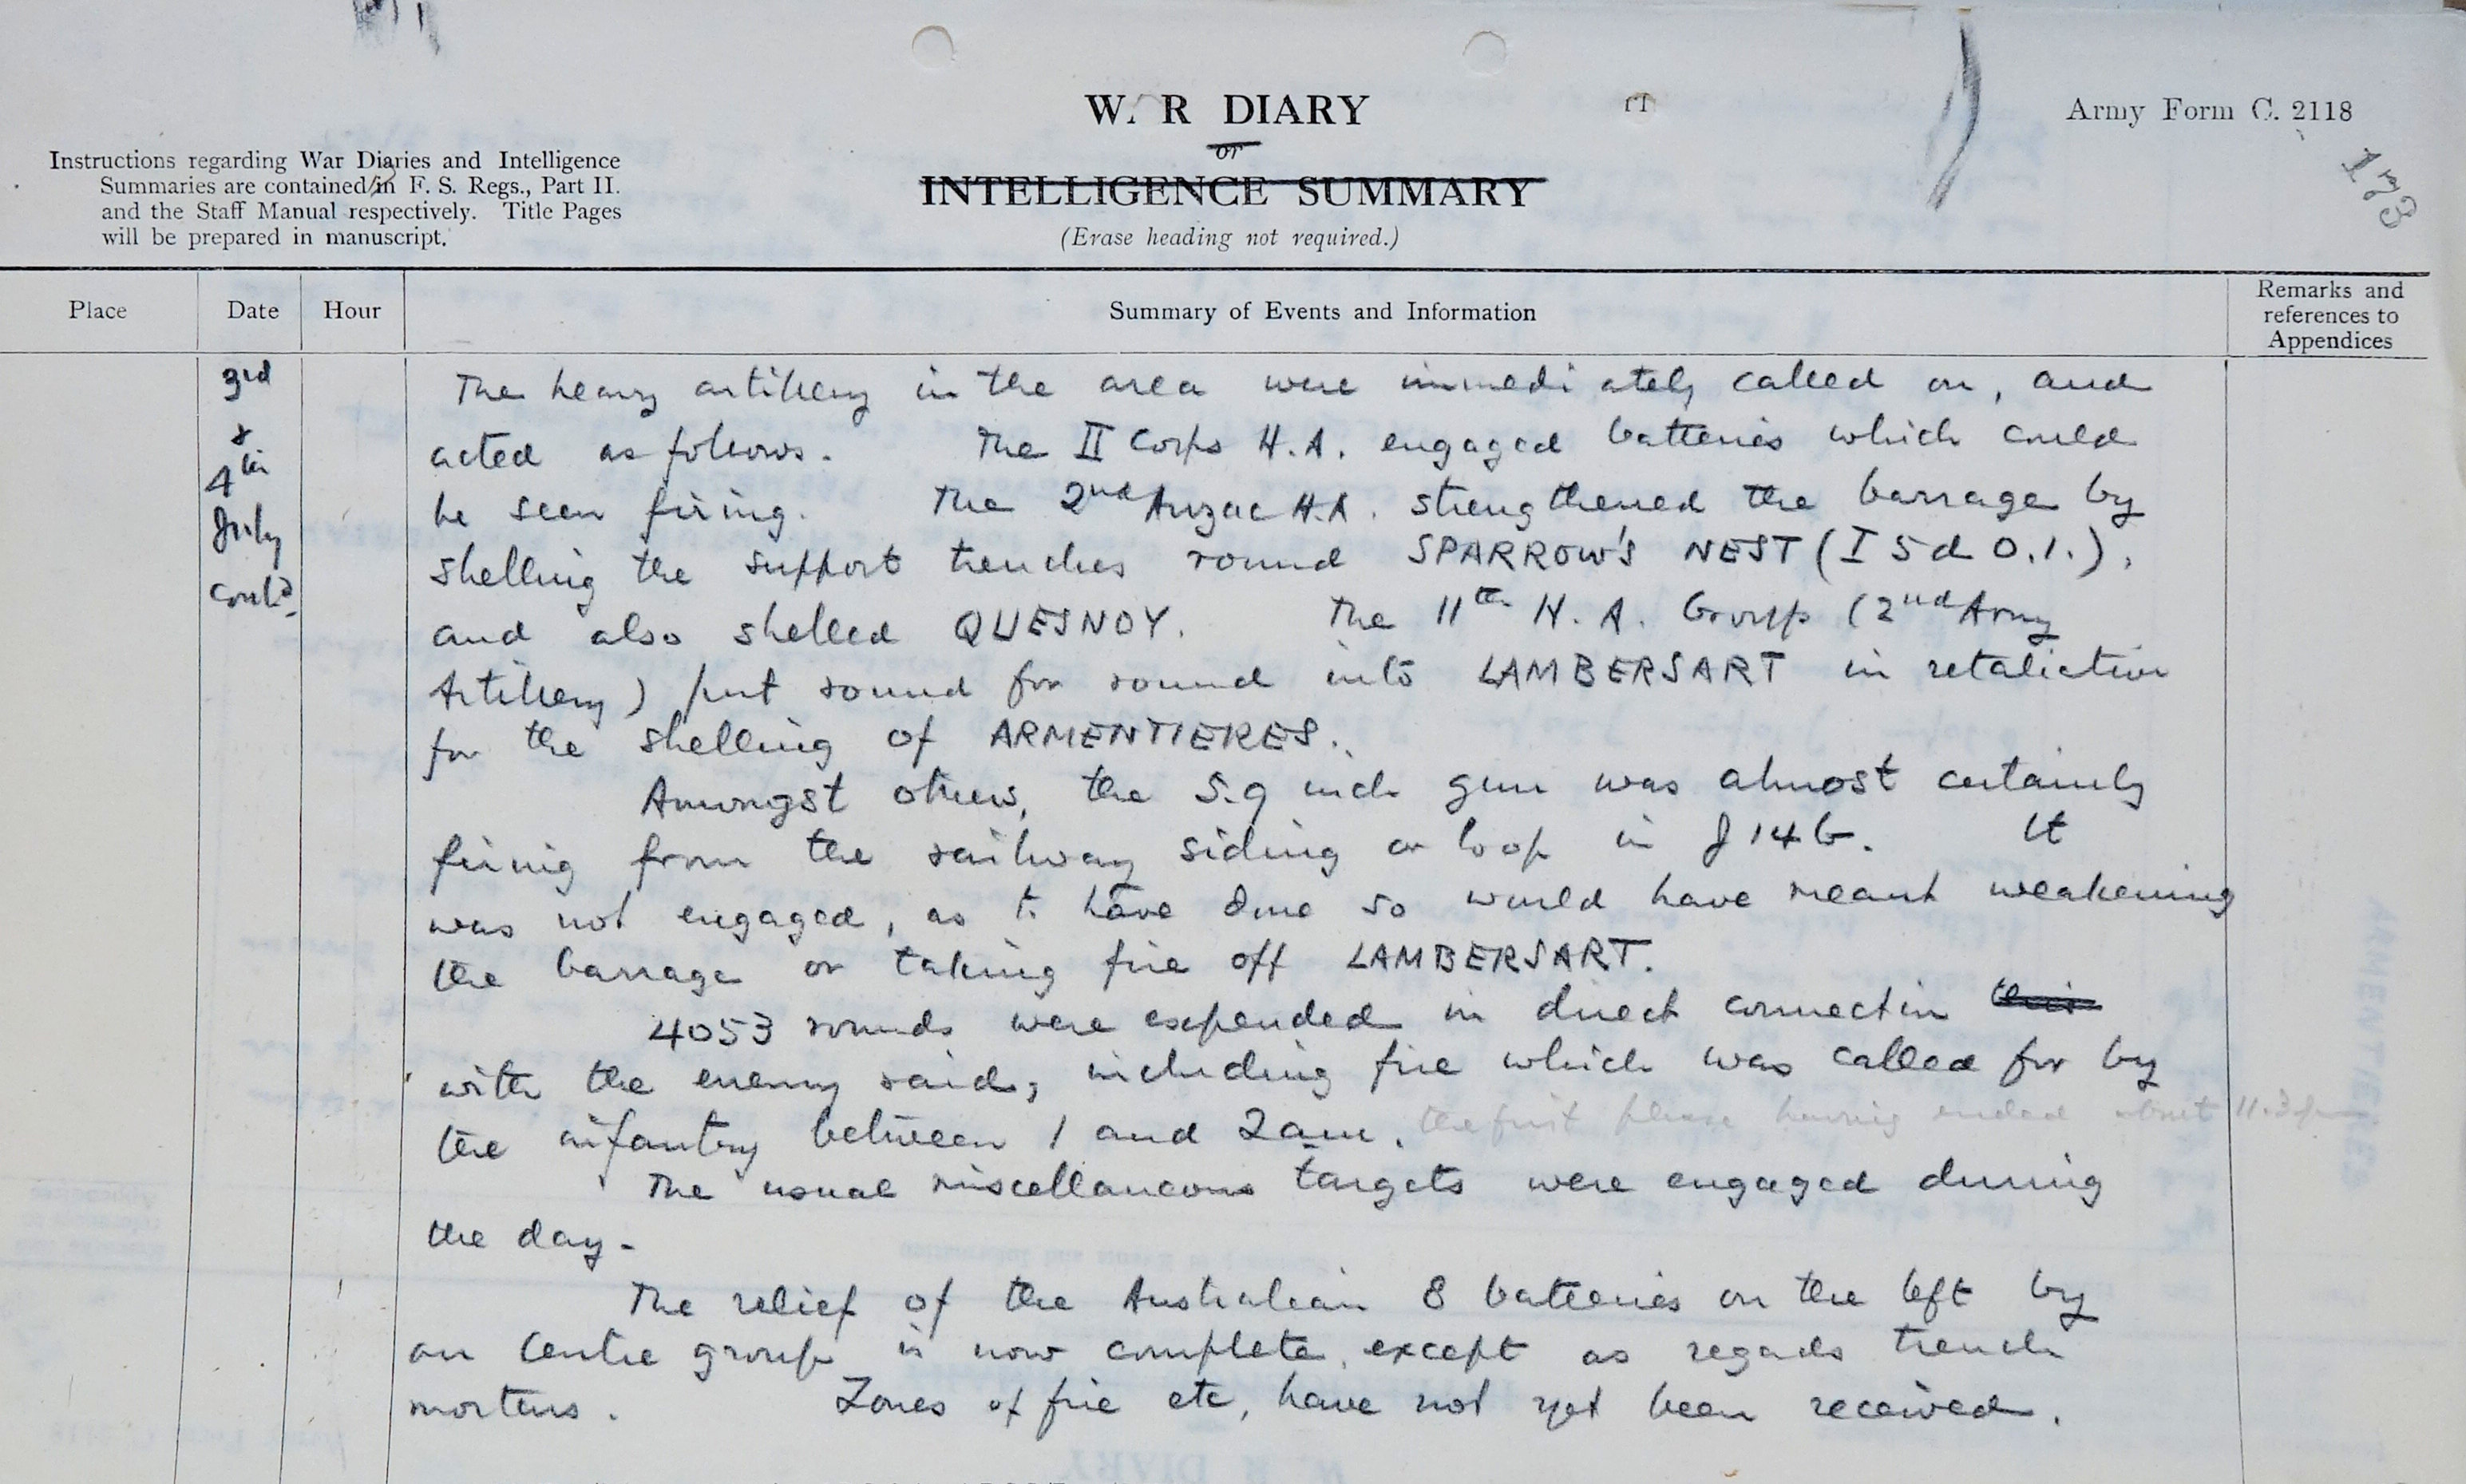 W. R DIARY
Army Form C. 2118
or
INTELLIGENCE SUMMARY
(Erase heading not required.)
Instructions regarding War Diaries and Intelligence
Summaries are contained in F. S. Regs., Part II.
and the Staff Manual respectively. Title Pages
will be prepared in manuscript.
Place Date Hour Summary of Events and Information Remarks and references to Appendices
3rd
&
4th
July
contd.
The heavy artillery in the area were immediately called on, and
acted as follows. The II Corps H.A. engaged batteries which could
be seen firing. The 2nd Anzac H.A. strengthened the barrage by
shelling the support trenches round SPARROW'S NEST (I 5 d 0.1.),
and also shelled QUESNOY. The 11th H.A. Group (2nd Army
Artillery) put round for round into LAMBERSART in retaliation
for the shelling of ARMENTIERES.
Amongst others, the 5.9 inch gun was almost certainly
firing from the railway siding or loop in J 14 b. It
was not engaged, as to have done so would have meant weakening
the barrage or taking fire off LAMBERSART.
4053 rounds were expended in direct connection
with the enemy raid, including fire which was called for by
the infantry between 1 and 2 am. the first phase having ended about 11.30 pm
The usual miscellaneous targets were engaged during
the day.
The relief of the Australian 8 batteries on the left by
our centre group is now complete, except as regards trench
mortars. Zones of fire etc, have not yet been received.